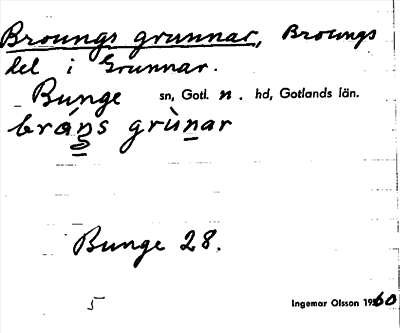 Broungs grunnar, Broungs
del i Grunnar.
Bunge sn, Gotl. n. hd, Gotlands län.
bráŋs grùnar
Bunge 28.
5 Ingemar Olsson 1960